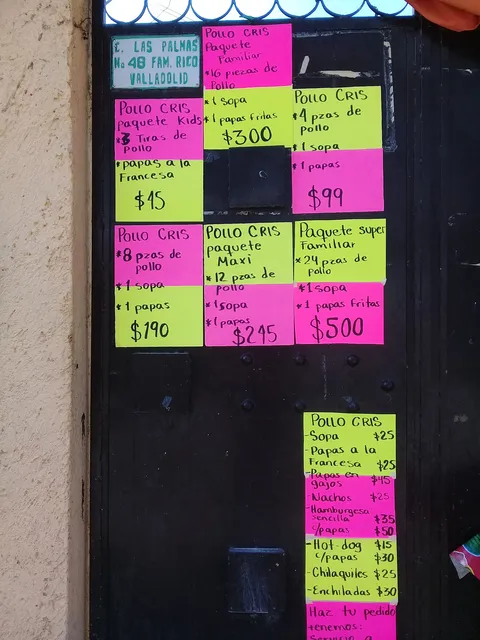 C. LAS PALMAS
No 48 FAM. RICO
VALLADOLID
POLLO CRIS
Paquete
Familiar
*16 piezas de
Pollo
*1 sopa
*1 papas fritas
$300
POLLO CRIS
paquete Kids
*3 Tiras de
pollo
*papas a la
Francesa
$45
POLLO CRIS
*4 pzas de
pollo
*1 sopa
*1 papas
$99
POLLO CRIS
*8 pzas de
pollo
*1 sopa
*1 papas
$190
POLLO CRIS
paquete
Maxi
*12 pzas de
pollo
*1sopa
*1papas
$245
Paquete super
Familiar
*24 pzas de
pollo
*1sopa
*1 papas fritas
$500
POLLO CRIS
-Sopa $25
-Papas a la
Francesa $25
-Papas en
gajos $45
-Nachos $25
-Hamburgesa
sencilla $35
c/papas $50
-Hot-dog $15
c/papas $30
-Chilaquiles $25
-Enchiladas $30
Haz tu pedido
tenemos:
Servicio a